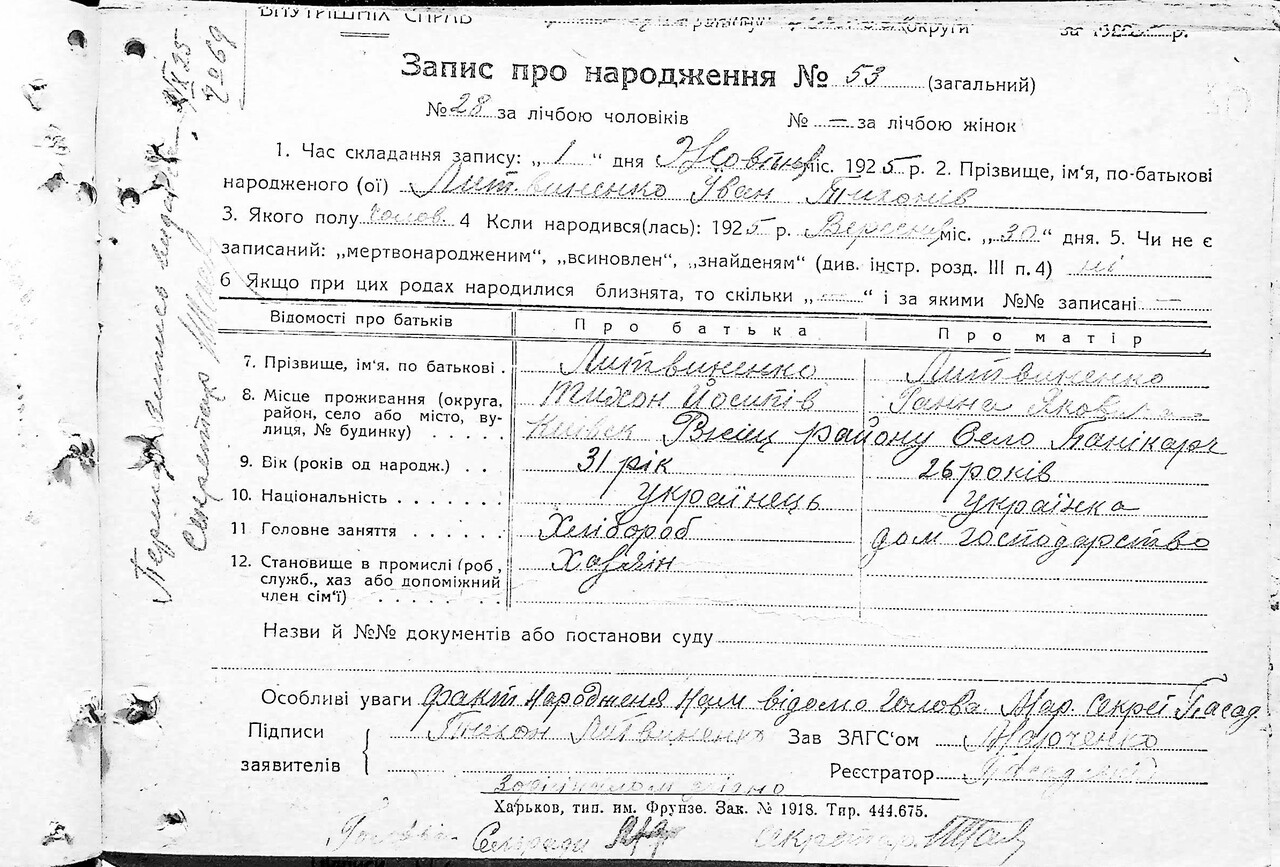 ВНУТРІШНІХ СПРАВ округи за 192 р.
Запис про народження № 53 (загальний)
№ 28 за лічбою чоловіків № — за лічбою жінок
1. Час складання запису: „ 1 “ дня Жовтня міс. 1925 р. 2. Прізвище, ім‘я, по-батькові
народженого (ої) Литвиненко Іван Тихонів
3. Якого полу чолов 4 Ксли народився(лась): 1925 р. Вересня міс. „30“ дня. 5. Чи не є
записаний: „мертвонародженим“, „всиновлен“, „знайденям“ (див. інстр. розд. III п. 4) ні
6 Якщо при цих родах народилися близнята, то скільки „ — “ і за якими №№ записані —
Відомості про батьків Про батька Про матір
7. Прізвище, ім‘я. по батькові . Литвиненко Литвиненко
8. Місце проживання (округа, Тихон Йосипів Ганна Яковл
район, село або місто, ву-
лиця, № будинку) . . . . . Київск району Село Панікарч
9. Вік (років од народж.) . . 31 рік 26 років
10. Національність . . . . . . . українець українка
11 Головне заняття . . . . . . Хлібороб дом господарство
12. Становище в промислі (роб, Хазяїн
служб., хаз або допоміжний
член сім‘ї) . . . . . . . .
Назви й №№ документів або постанови суду
Особливі уваги факт народженя нам відомо голова Мар. Секрет Пасад
Підписи Тихон Литвиненко Зав ЗАГС‘ом Марченко
заявителів Реєстратор
Харьков, тип. им. Фрунзе. Зак. № 1918. Тир. 444.675.
Голова Сельради секретар
Секретар